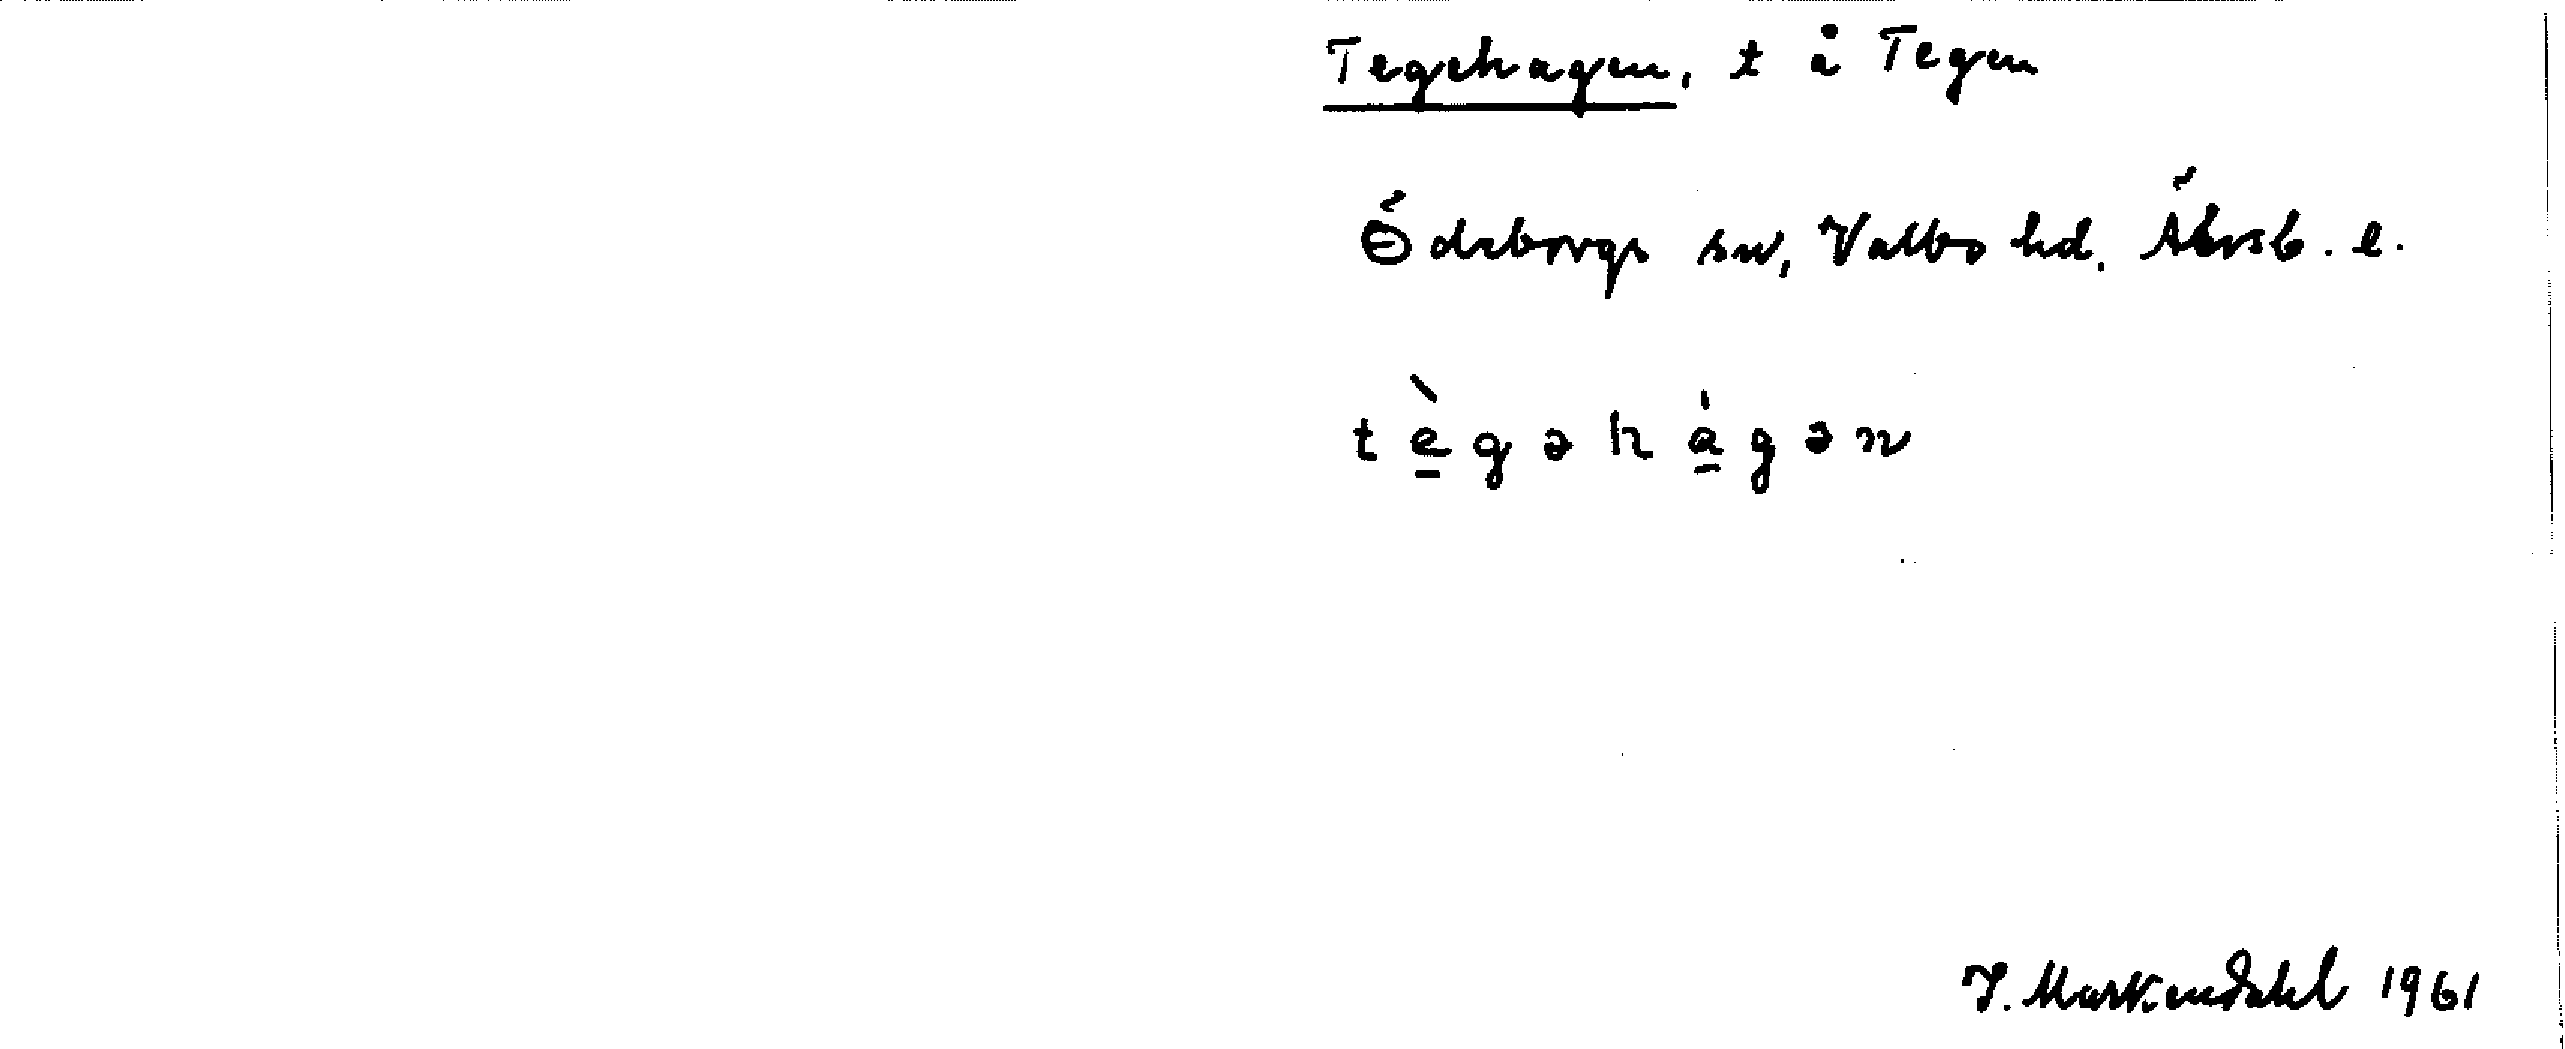 Tegehagen, t å Tegen
Ödeborgs sn, Valbo hd. Älvsb. l.
tègəhágən
J. Markendahl 1961